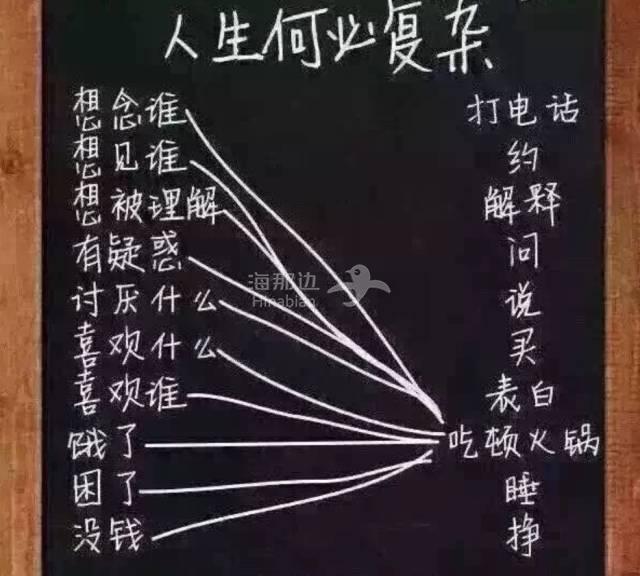 人生何必复杂
想念谁 打电话
想见谁 约
想被理解 解释
有疑惑 问
讨厌什么 说
喜欢什么 买
喜欢谁 表白
饿了 吃顿火锅
困了 睡
没钱 挣
海那边
Hinabian